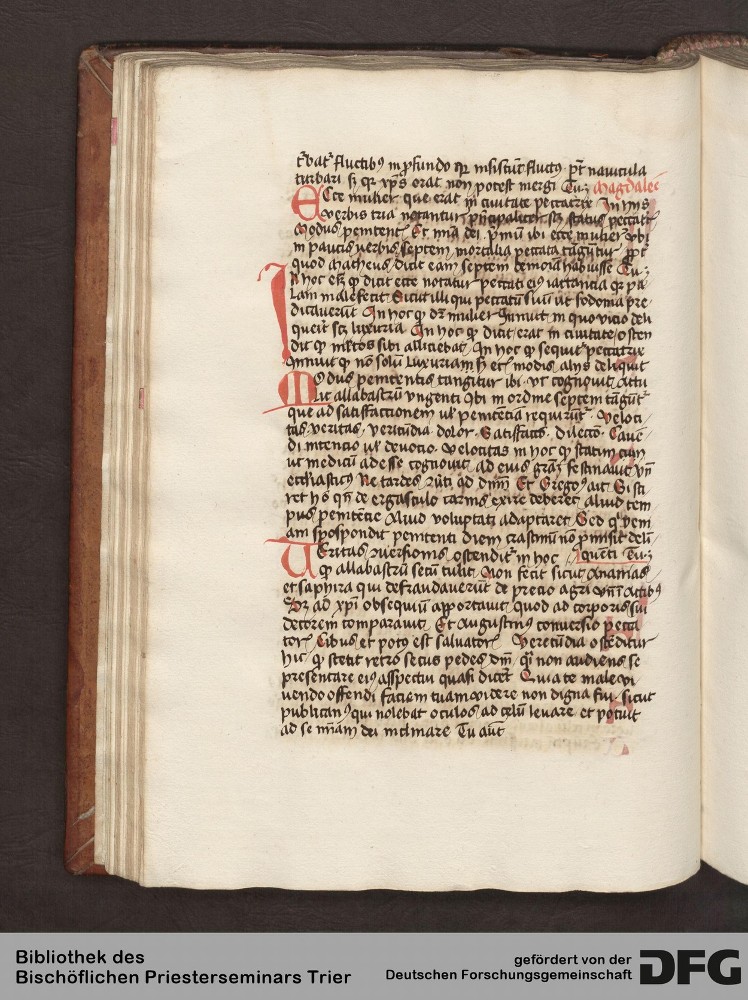 t'bat' fluctib9 in p̱fundo q̱ insistūt fluct9 p̄t navicula
turbari s; q̱ xp̄s erat non potest mergi Tu; Magdalēē
Ecce mulier que erat in ciuitate peccatrix In hijs
verbis tria notantur p'ncipaliter sc; status peccat'
Modus penitent' Et mīa dei p'mū ibi ecce mulier vbi
in paucis verbis septem mortalia peccata tāgūtur p̄t'
quod Matheus dicit eam septem demoīa habuisse Tu;
In hoc eī q̱ dicit ecce notatur peccati ei9 iactancia q̱ pa
lam male fecit Sicut illi qui peccatū suū ut sodoma pre
dicauerūt In hoc q̱ dr̄ mulier Innuit' in quo vicio deli
querit sc; luxuria In hoc q̱ dicit' erat in ciuitate osten
dit' q̱ mltos sibi alliciebat In hoc q̱ sequit' peccatrix
Innuit' q̱ nō solū luxuriam s; et modis alijs deliquit
Modus penitentis tangitur ibi vt cognouit Attu
lit allabastrū vngenti vbi in ordine septem tāgūt'
que ad satisfactionem ul' penitēcia requirūt' veloci
tas veritas verecūdia dolor Satisfact' dilectō Cauē
di intencio ul' deuocio velocitas in hoc q̱ statim cum
ut medicū adesse cognouit ad eius grām festinauit vn̄
ecclesiastic9 Ne tardes 9ūti ad dn̄m Et Grego9 ait Si sti
ret hō qn̄ de ergasculo carnis exire deberet aliud tem
pus penitēcie Aliud voluptati adaptaret Sed q' vem
am spospondit penitenti diem crastinū nō p'misit delī
Veritas 9uersionis ostendit' in hoc quēti Tu;
q̱ allabastrū secū tulit Non fecit sicut Ananias
et saphira qui defraudauerūt de precio agri vn̄ Actib9
S; ad xpī obsequiū apportauit quod ad corporis sui
decorem comparauit Et Augustin9 conuersio pecca
tor' cibus et pot9 est saluator' verecūdia ostēditur
hic q̱ stetit retro secus pedes dn̄i q' non audiens se
presentare ei9 asspectui quasi dicēt Quia te male vi
uendo offendi faciem tuam videre non digna fui sicut
publican9 qui nolebat oculos ad celū leuare et potuit
ad se mīam dei inclinare Tu aūt
Bibliothek des
Bischöflichen Priesterseminars Trier
gefördert von der
Deutschen Forschungsgemeinschaft
DFG